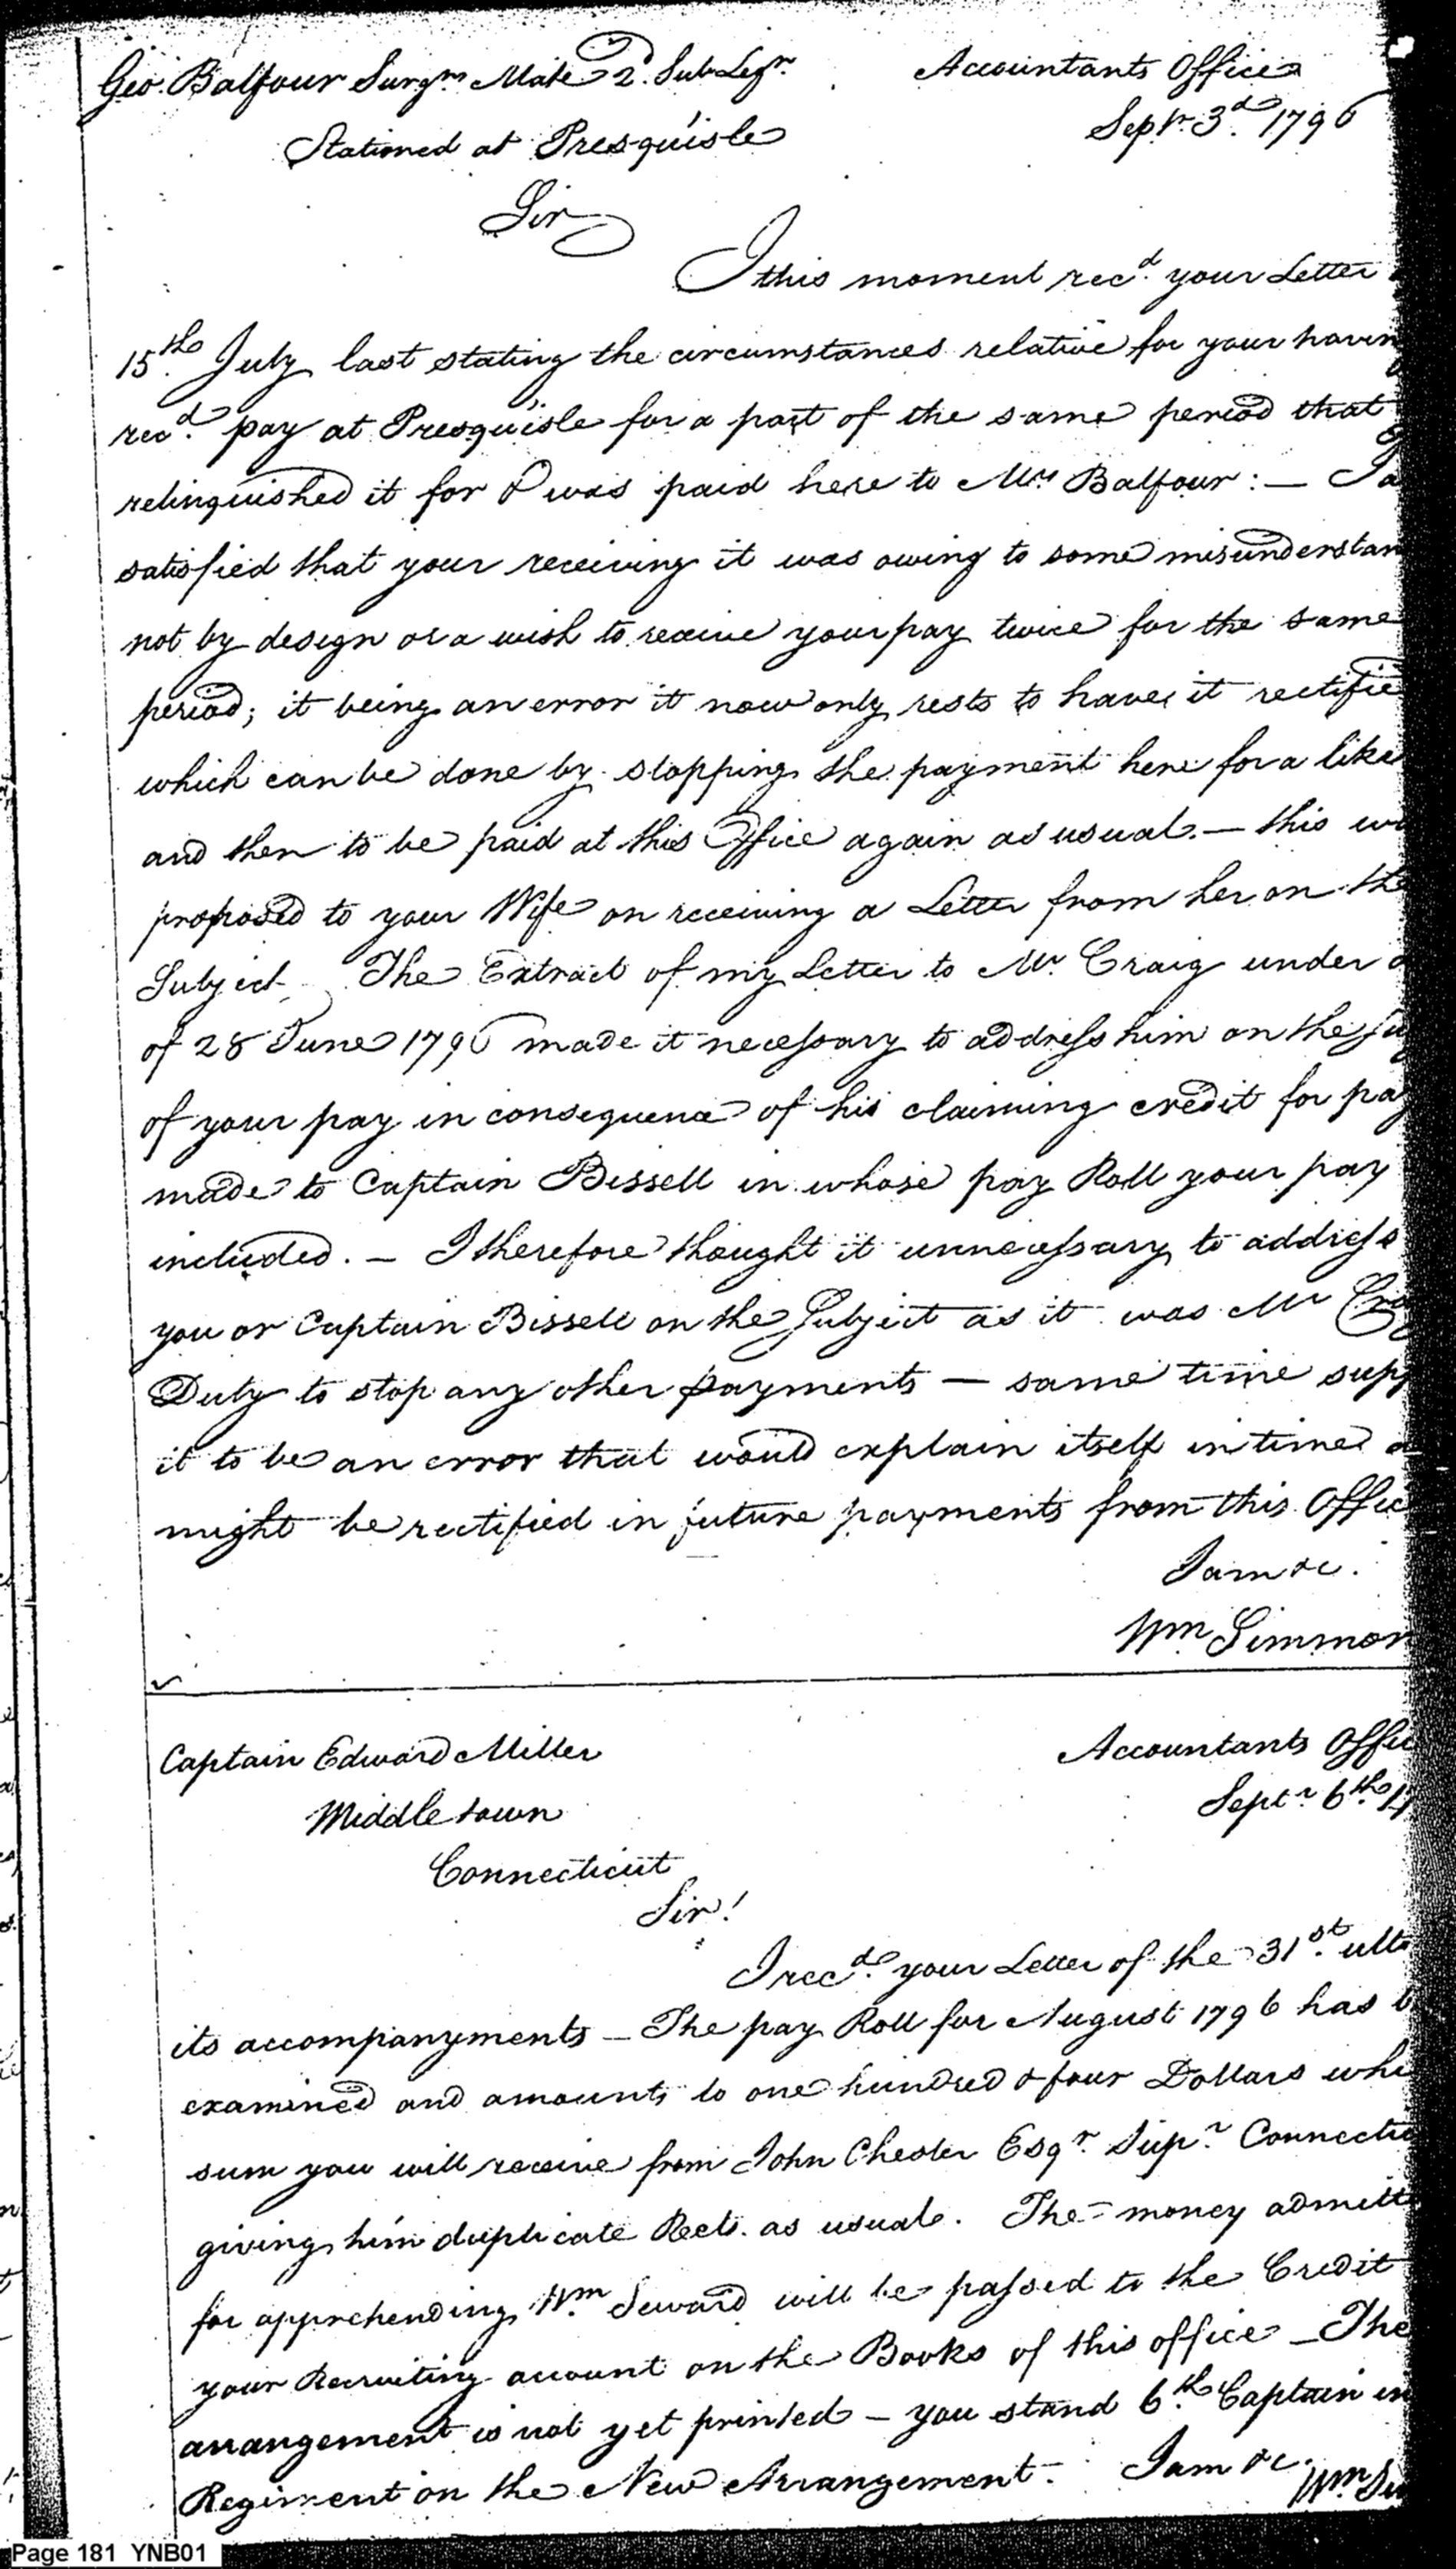 Geo. Balfour Surgns Mate 2d. Sub Legn.
Accountants Office
Septr. 3d. 1796
Stationed at Presquisle
Sir
I this moment recd. your Letter
15th. July last stating the circumstances relative for your havin
recd. pay at Presquisle for a part of the same period that
relinquished it for & was paid here to Mrs Balfour: — I a
satisfied that your receiving it was owing to some misunderstan
not by design or a wish to receive your pay twice for the same
period; it being an error it now only rests to have it rectifie
which can be done by stopping the payment here for a like
and then to be paid at this Office again as usual. — this w
proposed to your Wife on receiving a Letter from her on the
Subject. The Extract of my Letter to Mr. Craig under
of 28 June 1796 made it necessary to address him on the su
of your pay in consequence of his claiming credit for pay
made to Captain Bissell in whose pay Roll your pay
included. — I therefore thought it unnecessary to address
you or Captain Bissell on the Subject as it was Mr Cra
Duty to stop any other payments — same time supp
it to be an error that would explain itself in time a
might be rectified in future payments from this Offic
I am &c.
Wm Simmon
Captain Edward Miller
Accountants Offic
Middletown
Septr 6th. 17
Connecticut
Sir!
I recd. your Letter of the 31st. ulto
its accompanyments — The pay Roll for August 1796 has b
examined and amounts to one hundred & four Dollars whi
sum you will receive from John Chester Esqr. Supr. Connectic
giving him duplicate Rects. as usual. The money admitt
for apprehending Wm. Seward will be passed to the Credit
your Recruiting account on the Books of this office — The
arrangement is not yet printed — you stand 6th. Captain in
Regiment on the New Arrangement. I am &c
Wm. Si
Page 181 YNB01